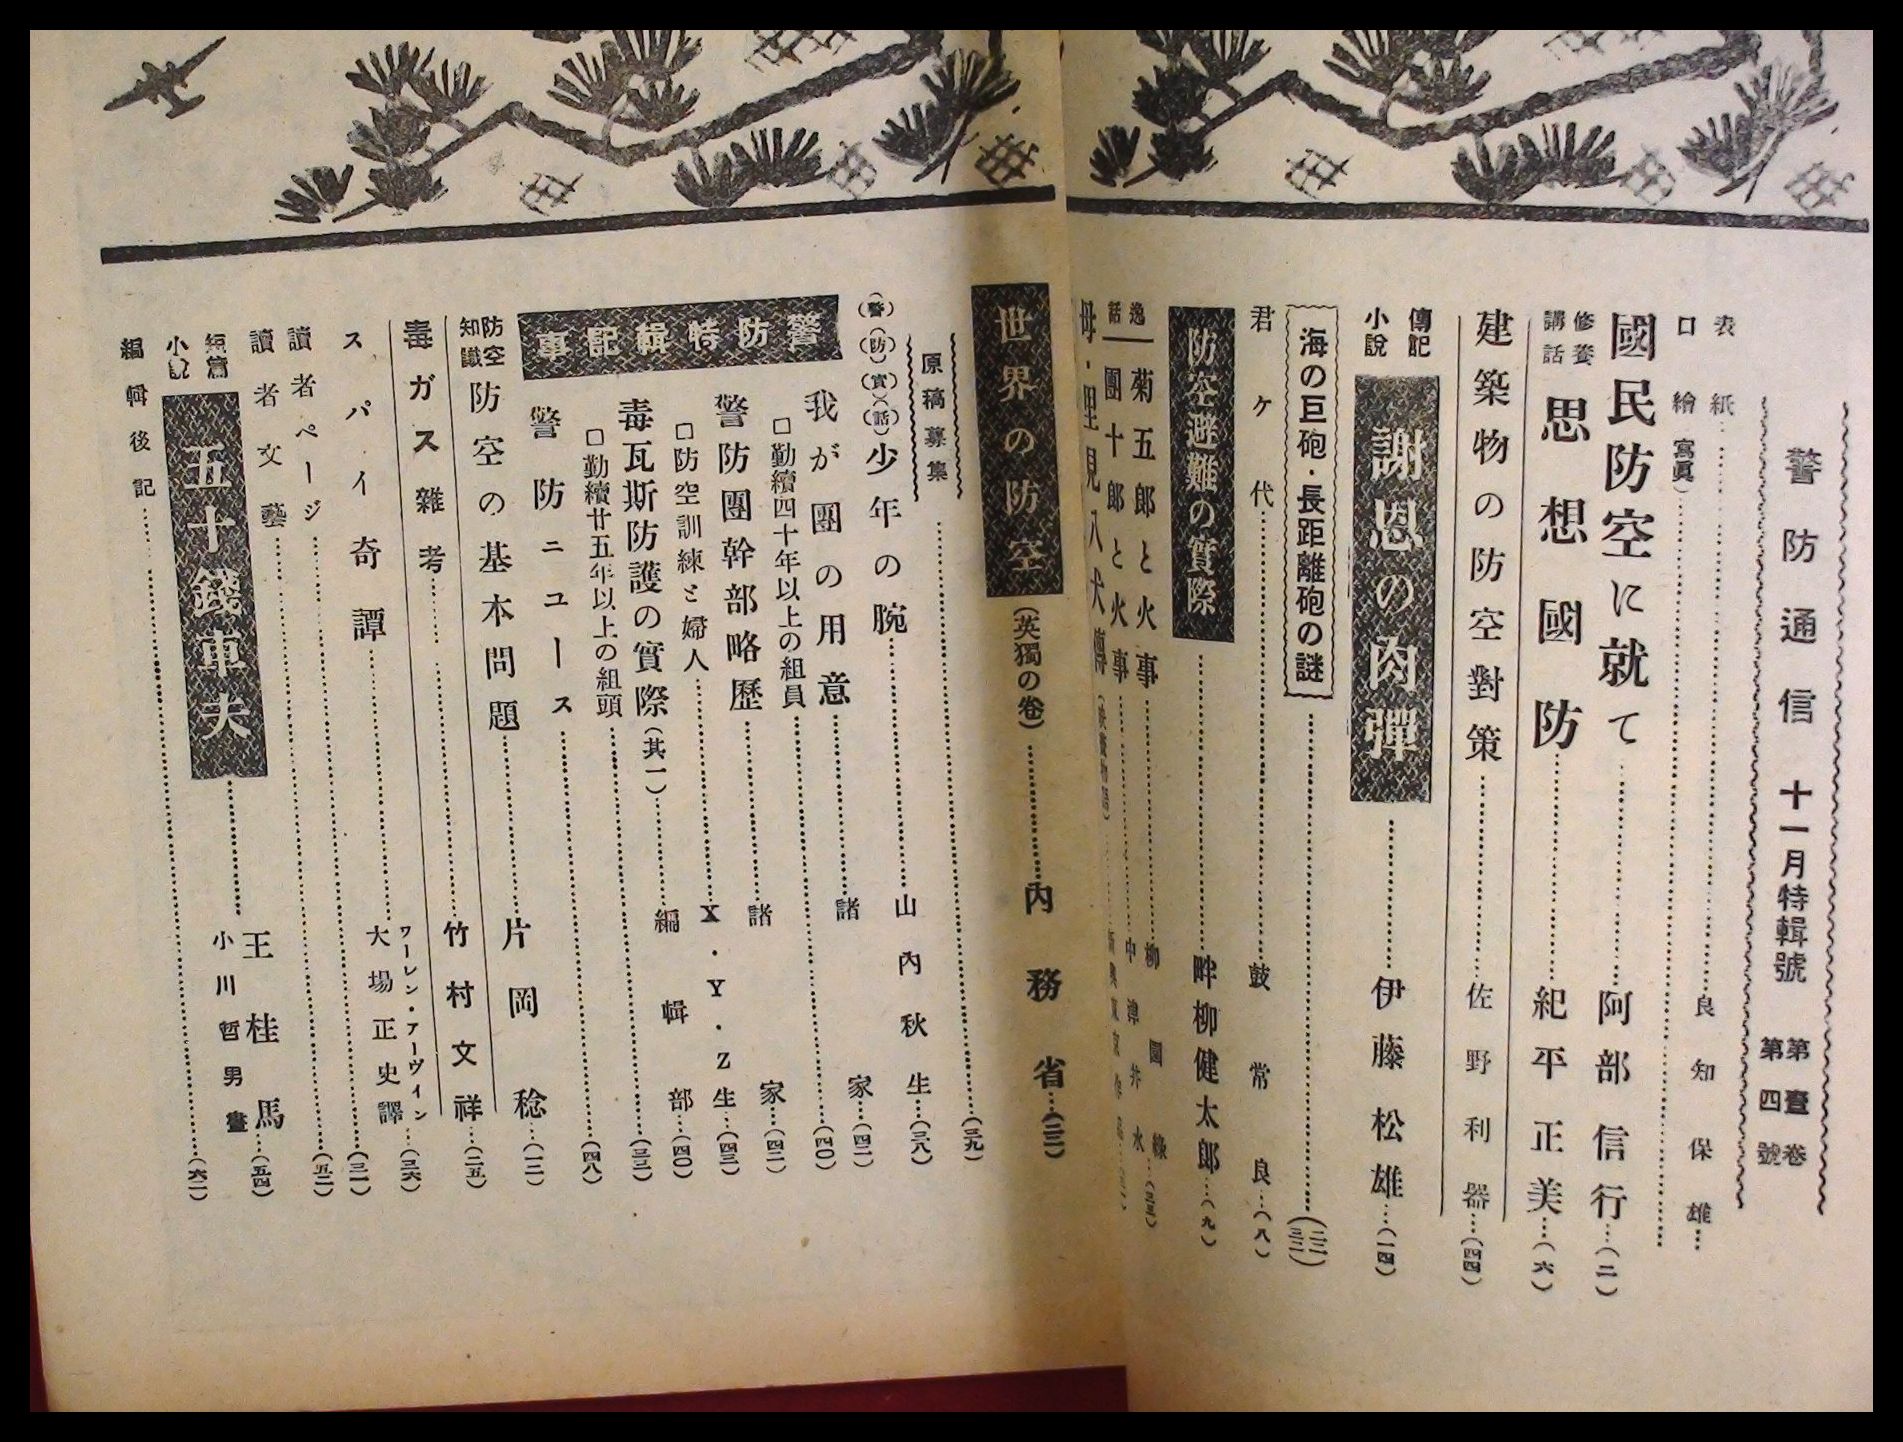 警防通信 十一月特輯號 第壹卷 第四號
表紙……良知保雄…
口繪(寫眞)……
國民防空に就て……阿部信行…(二)
修養講話 思想國防……紀平正美…(六)
建築物の防空對策……佐野利器…(四四)
傳記小說 謝恩の肉彈……伊藤松雄…(一四)
海の巨砲・長距離砲の謎……(二二)(三二)
君ケ代……鼓常良…(八)
防空避難の實際……畔柳健太郎…(九)
逸話 菊五郎と火事……柳園綠…(三三)
團十郎と火事……中津井水
母・里見八犬傳
世界の防空(英獨の卷)……內務省…(二三)
原稿募集……(三九)
(警)(防)(實)(話)少年の腕……山內秋生…(三八)
警防特輯記事
我が團の用意……諸家…(四二)
□勤續四十年以上の組員……(四〇)
警防團幹部略歷……諸家…(四二)
□防空訓練と婦人……X・Y・Z生…(四三)
毒瓦斯防護の實際(其一)……編輯部…(四〇)
□勤續廿五年以上の組頭……(三三)
警防ニュース……(四八)
防空知識 防空の基本問題……片岡稔…(一二)
毒ガス雜考……竹村文祥…(二五)
スパイ奇譚……ワーレン・アーヴィン 大場正史譯…(三六)
讀者ページ……(三一)
讀者文藝……(五二)
短篇小說 五十錢車夫……王桂馬 小川哲男畫…(五四)
編輯後記……(六二)